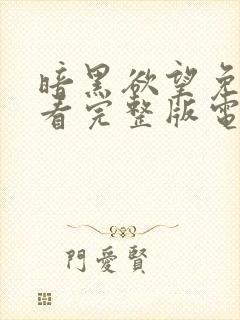 暗黑欲望免
看完整版電
門愛賢